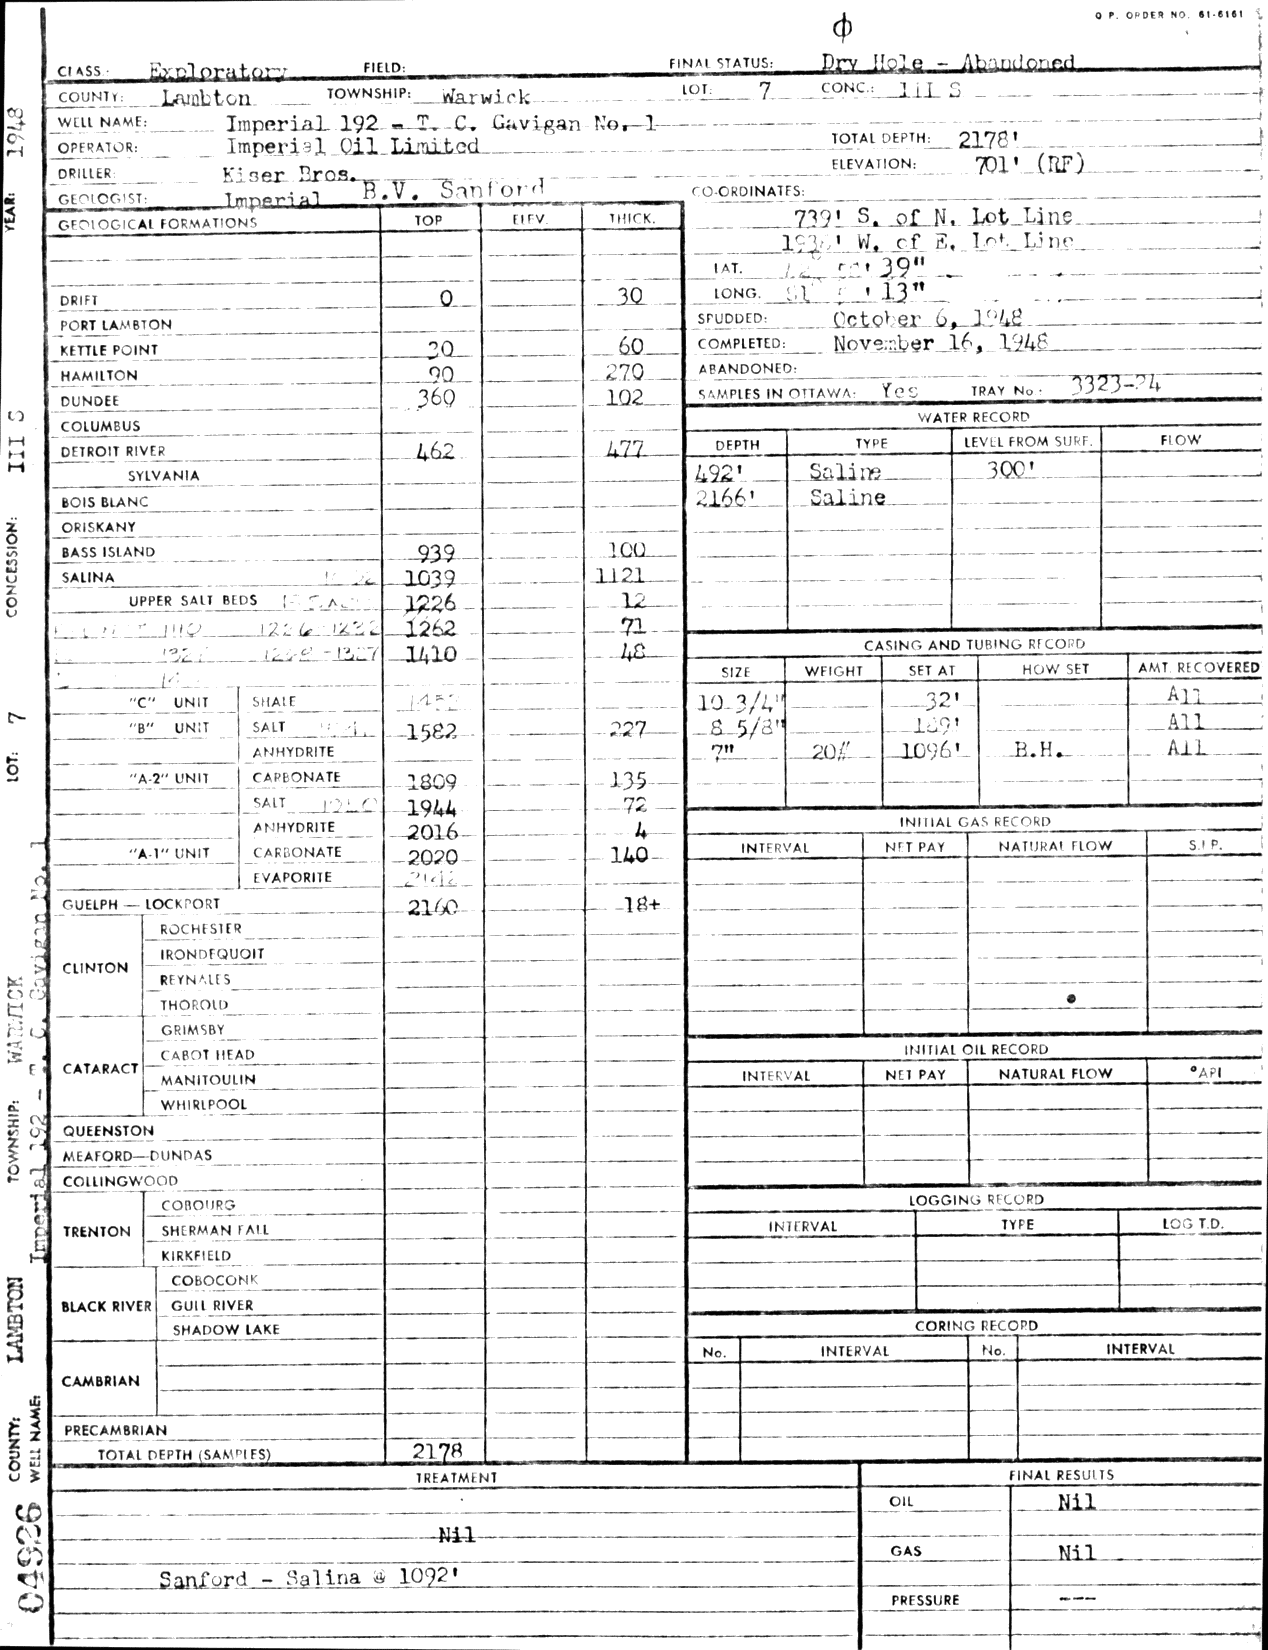 O P. ORDER NO. 61-6161
CLASS: Exploratory FIELD: FINAL STATUS: Dry Hole - Abandoned
COUNTY: Lambton TOWNSHIP: Warwick LOT: 7 CONC.: III S
WELL NAME: Imperial 192 - T. C. Gavigan No. 1
OPERATOR: Imperial Oil Limited TOTAL DEPTH: 2178'
DRILLER: Kiser Bros. ELEVATION: 701' (RF)
GEOLOGIST: Imperial B.V. Sanford CO-ORDINATES:
739' S. of N. Lot Line
W. of E. Lot Line
LAT. 39"
LONG. 13"
SPUDDED: October 6, 1948
COMPLETED: November 16, 1948
ABANDONED:
SAMPLES IN OTTAWA: Yes TRAY No: 3323-24
GEOLOGICAL FORMATIONS TOP ELEV. THICK.
DRIFT 0 30
PORT LAMBTON
KETTLE POINT 30 60
HAMILTON 90 270
DUNDEE 360 102
COLUMBUS
DETROIT RIVER 462 477
SYLVANIA
BOIS BLANC
ORISKANY
BASS ISLAND 939 100
SALINA 1039 1121
UPPER SALT BEDS 1226 12
1226-1232 1262 71
1327 -1327 1410 48
"C" UNIT SHALE
"B" UNIT SALT 1582 227
ANHYDRITE
"A-2" UNIT CARBONATE 1809 135
SALT 1944 72
ANHYDRITE 2016 4
"A-1" UNIT CARBONATE 2020 140
EVAPORITE
GUELPH — LOCKPORT 2160 18+
CLINTON
ROCHESTER
IRONDEQUOIT
REYNALES
THOROLD
CATARACT
GRIMSBY
CABOT HEAD
MANITOULIN
WHIRLPOOL
QUEENSTON
MEAFORD—DUNDAS
COLLINGWOOD
TRENTON
COBOURG
SHERMAN FALL
KIRKFIELD
BLACK RIVER
COBOCONK
GULL RIVER
SHADOW LAKE
CAMBRIAN
PRECAMBRIAN
TOTAL DEPTH (SAMPLES) 2178
WATER RECORD
DEPTH TYPE LEVEL FROM SURF. FLOW
492' Saline 300'
2166' Saline
CASING AND TUBING RECORD
SIZE WEIGHT SET AT HOW SET AMT. RECOVERED
10 3/4" 32' All
8 5/8" 189' All
7" 20# 1096' B.H. All
INITIAL GAS RECORD
INTERVAL NET PAY NATURAL FLOW S.I.P.
INITIAL OIL RECORD
INTERVAL NET PAY NATURAL FLOW °API
LOGGING RECORD
INTERVAL TYPE LOG T.D.
CORING RECORD
No. INTERVAL No. INTERVAL
TREATMENT
Nil
Sanford - Salina @ 1092'
FINAL RESULTS
OIL Nil
GAS Nil
PRESSURE ---
COUNTY: LAMBTON TOWNSHIP: WARWICK LOT: 7 CONCESSION: III S YEAR: 1948
WELL NAME: Imperial 192 - T. C. Gavigan No. 1
04926